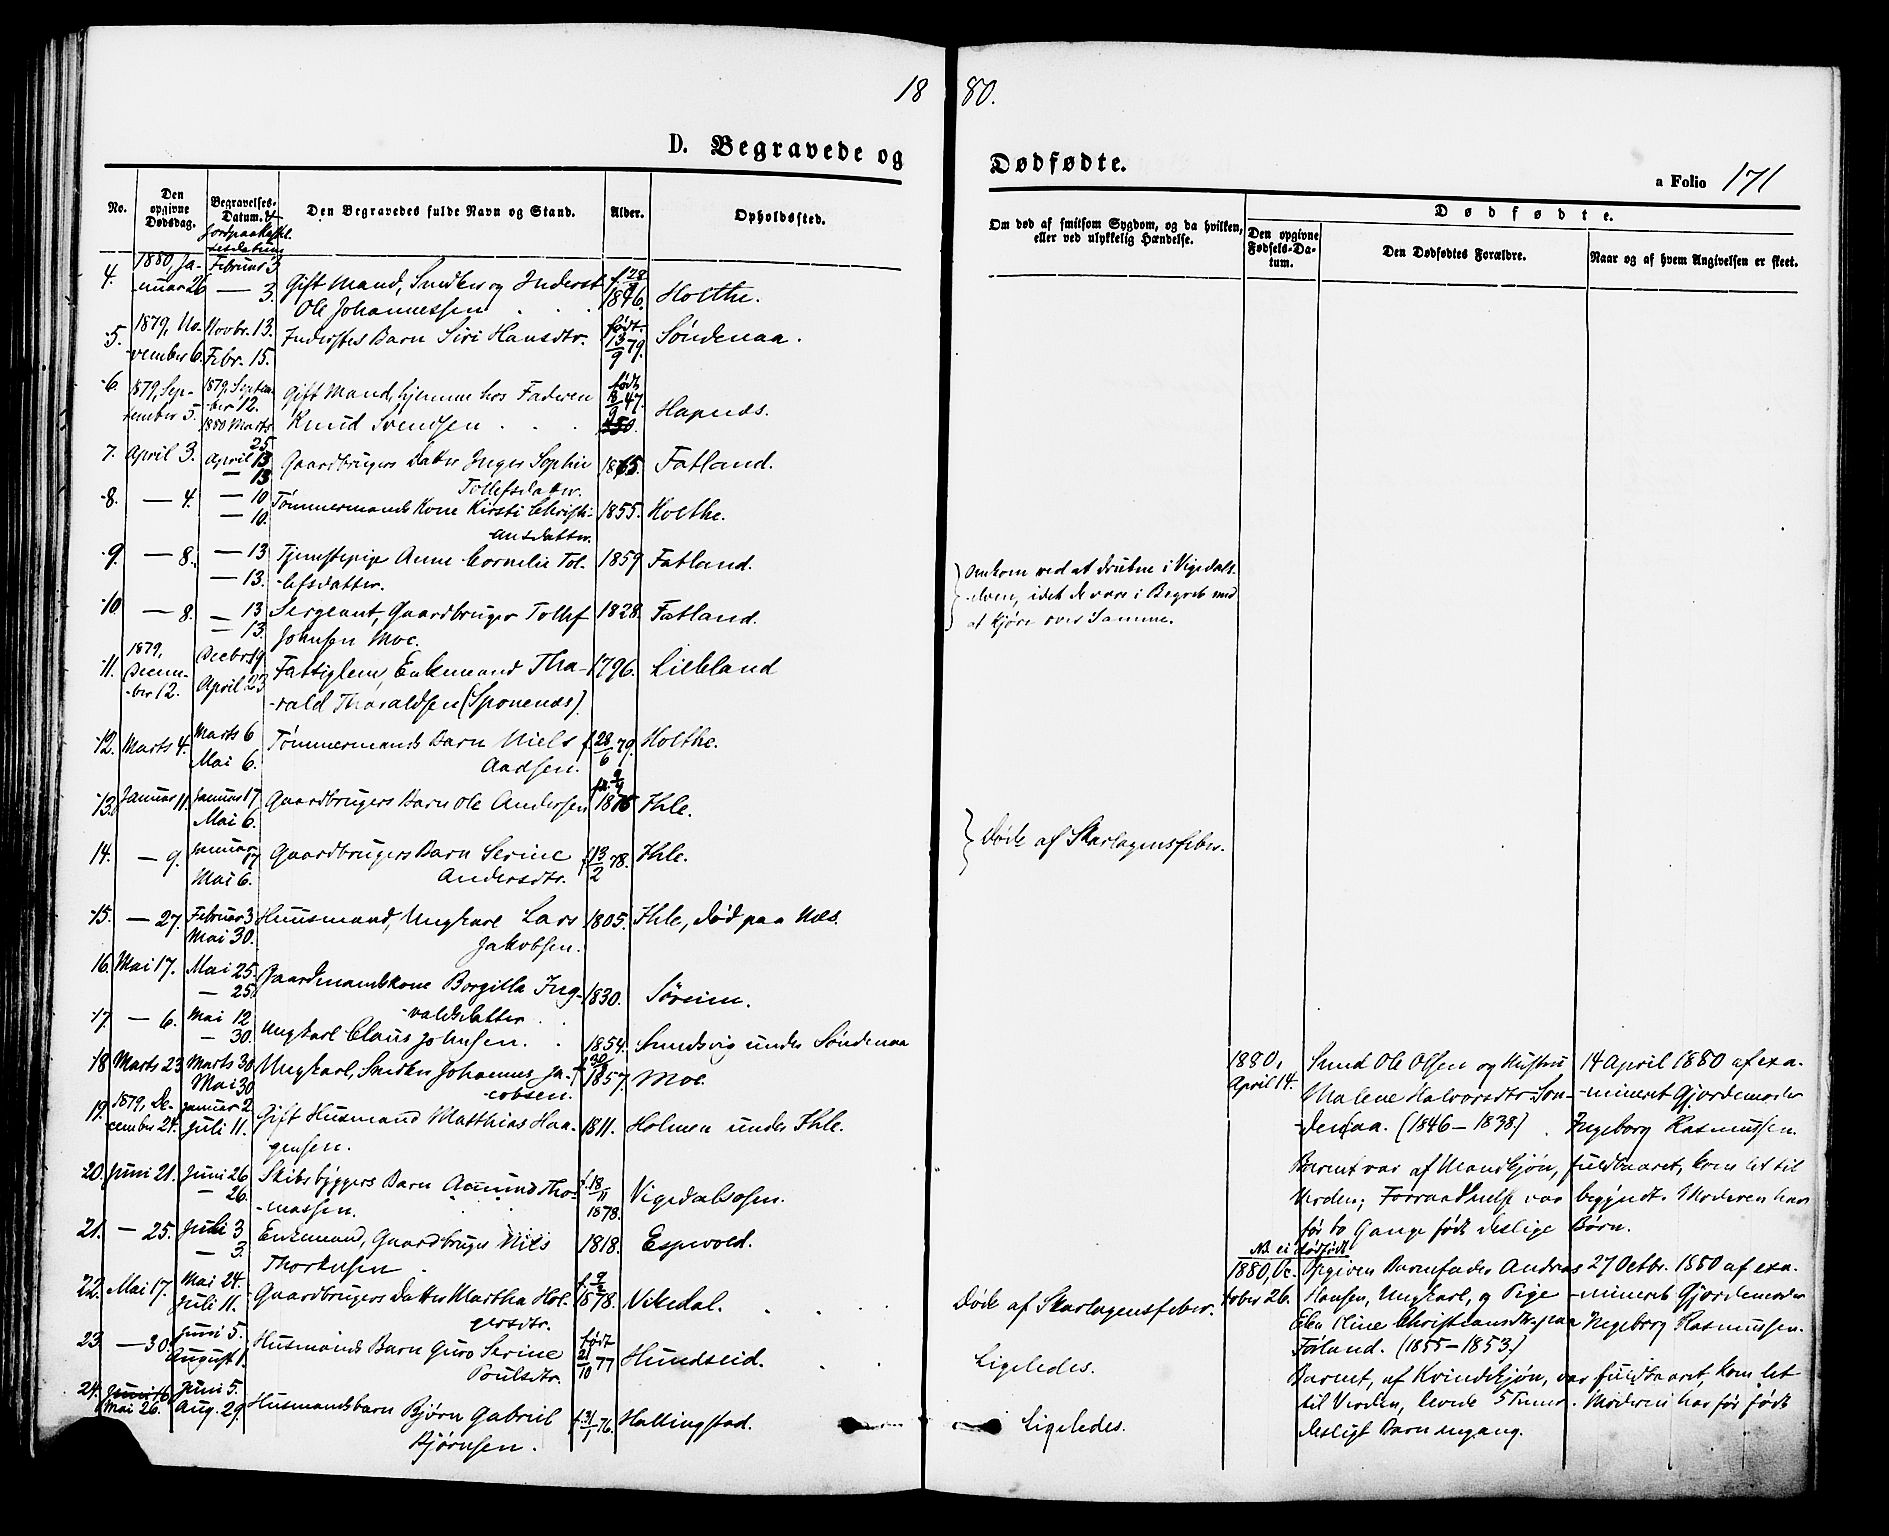 18 80.
D. Begravede og Dødfødte.
a Folio 171
No.
Den opgivne Dødsdag.
Begravelses-Datum. & Jordpaakastelsesdatum
Den Begravedes fulde Navn og Stand.
Alder.
Opholdssted.
Om død af smitsom Sygdom, og da hvilken, eller ved ulykkelig Hændelse.
Dødfødte.
Den opgivne Fødsels-Datum.
Den Dødfødtes Forældre.
Naar og af hvem Angivelsen er skeet.
4. 1880 Ja- Februar 3 Gift Mand, Snedker og Inderst
nuar 26 — 3. Ole Johannessen . . . 1846. Holthe.
5. 1879, No- Novbr. 13. Inderstes Barn Siri Hansdtr. født 13/9 79. Søndenaa.
vember 6. Febr. 15.
6. 1879, Sep- 1879, Septem- Gift Mand, hjemme hos Faderen født 47.
tember 5. ber 12. Knud Svendsen . . . Hapnæs.
1880 Marts 25
7. April 3. April 13 Gaardbrugers Datter Inger Sophie 1865. Fatland.
— 13 Tollefsdatter.
8. — 4. — 10 Tømmermands Kone Kirsti Christi- 1855. Holthe.
— 10. ansdatter.
9. — 8. — 13 Tjenestepige Anne Cornelia Tol- 1859 Fatland.
— 13. lefsdatter.
10 — 8. — 13 Sergeant, Gaardbruger Tollef 1828. Fatland.
— 13. Johnsen Moe.
Omkom ved at drukne i Vigedals-
elven, idet de vare i Begreb med
at kjøre over Samme.
11. 1879, Decem- Decbr. 19 Fattiglem, Enkemand Tha- 1796. Lilleland
ber 12. April 23 rald Tharaldsen (Sponenæs).
12. Marts 4. Marts 6 Tømmermands Barn Niels f. 28/6 79. Holthe.
Mai 6. Aadsen.
13. Januar 11. Januar 17 Gaardbrugers Barn Ole Andersen 1875 Ihle.
Mai 6.
14. — 9. Januar 17 Gaardbrugers Barn Serine f. 13/2 78. Ihle.
Mai 6. Andersdtr.
Døde af Skarlagensfeber.
15. — 27. Februar 3 Huusmand, Ungkarl Lars 1805. Ihle, død paa Næs.
Mai 30. Jakobsen.
16. Mai 17. Mai 25. Gaardmandskone Borgilla Ing- 1830. Søreim.
— 25. valdsdatter . .
17. — 6. Mai 12 Ungkarl Claus Johnsen. . 1854. Sundsvig under Søndenaa
— 30.
18 Marts 23 Marts 30 Ungkarl, Smeden Johannes Ja- 1857. Moe.
Mai 30 cobsen.
19. 1879, De- Januar 2. Gift Husmand Matthias Haa- 1811. Holmen under Ihle.
cember 24. Juli 11. gensen.
20. Juni 21. Juni 26 Skibsbyggers Barn Amund Tho- f. 18/11 1878. Vigedalsosen.
— 26. massen.
21. — 25. Juli 3 Enkemand, Gaardbruger Nils 1818. Espevold.
— 3. Thorkelsen .
22. Mai 17. Mai 24. Gaardbrugers Datter Martha Hol- 1878. Vikedal. . . Døde af Skarlagensfeber.
Juli 11. gersdtr.
23 — 30. Juni 5. Husmands Barn Guro Serine født 21/10 77 Hundseid. . Ligeledes.
August 1. Poulsdtr.
24. Juni 16 Juni 5. Husmandsbarn Bjørn Gabriel f. 31/1 76. Hallingstad. Ligeledes.
Mai 26. Aug. 29. Bjørnsen.
1880, April 14. Smed Ole Olsen og Hustru 14 April 1880 af exa-
Malene Halvorsdtr Søn- mineret Gjordemoder
denaa. (1846 – 1838) . Ingeborg Rasmussen.
Barnet var af Mandkjøn, fuldbaaret, kom let til
Verden; Forraadnelse var begyndt. Moderen har
før to Gange født deslige Børn.
NB. ei dødfødt
1880, Oc- Opgiven Barnefader Andreas 27 Octbr. 1880 af exa-
tober 26. Hansen, Ungkarl, og Pige mineret Gjordemoder
Christiansdtr. paa Ingeborg Rasmussen.
Førland. (1855 – 1853.)
Barnet, af Kvindekjøn, var fuldbaaret, kom let
til Verden, levede 5 Timer. Moderen har før født
desligt Barn engang.